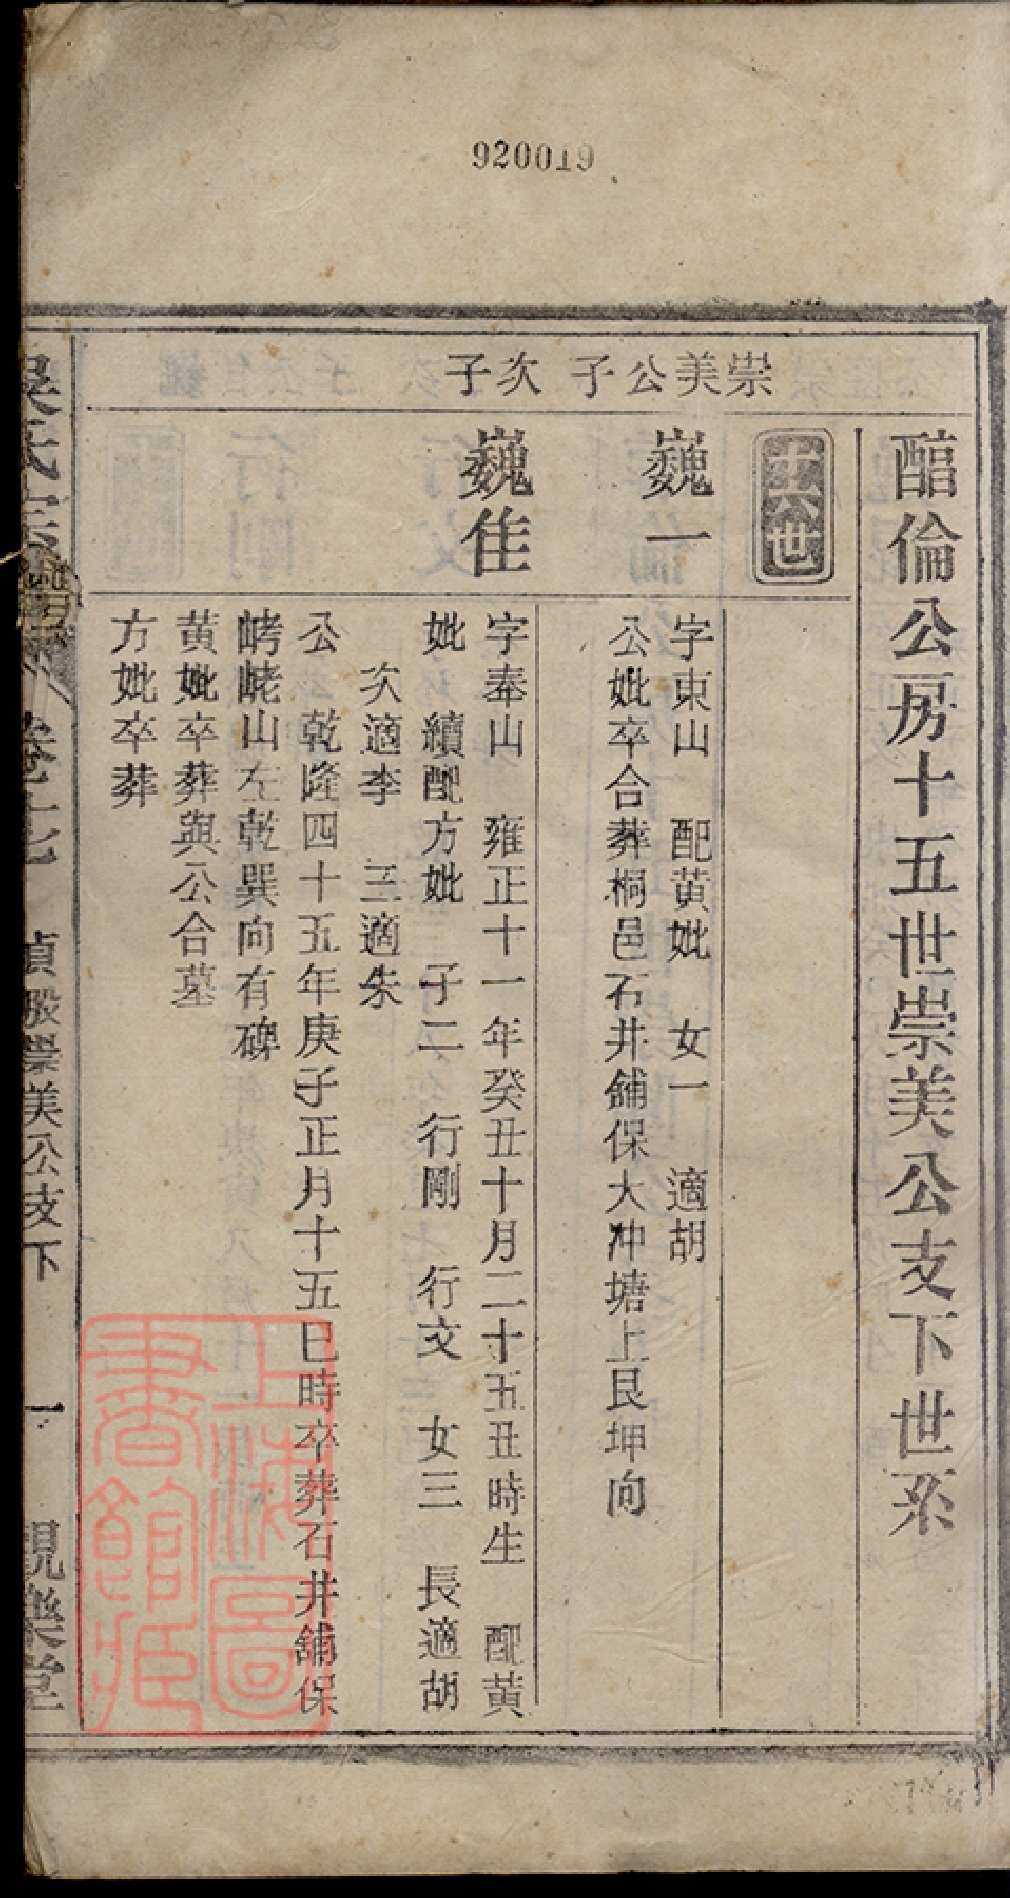 920019
崇美公子 次子
醕倫公房十五世崇美公支下世系
十六世
巍一
字東山 配黄妣 女一 適胡
公妣卒合葬桐邑石井舖保大冲塘上艮坤向
巍隹
字奉山 雍正十一年癸丑十月二十五丑時生 配黄
妣 續配方妣 子二 行剛 行文 女三 長適胡
次適李 三適朱
公 乾隆四十五年庚子正月十五巳時卒葬石井舖保
山左乾巽向有碑
黄妣卒葬與公合墓
方妣卒葬
吳氏宗譜 卷十七 貞股崇美公支下 一 親樂堂
上海圖書館藏